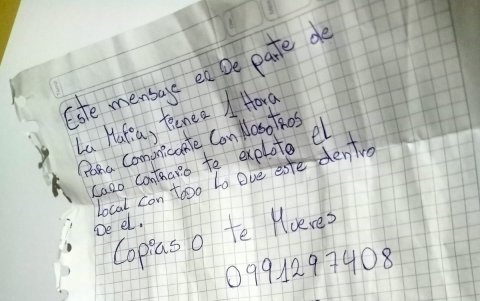 Este mensaje es De parte de
La Mafia, tienes 1 Hora
Para comunicarte Con Nosotros
Caso contrario te exploto el
Local con todo lo que este dentro
De el.
Copias o te Mueres
0991297408